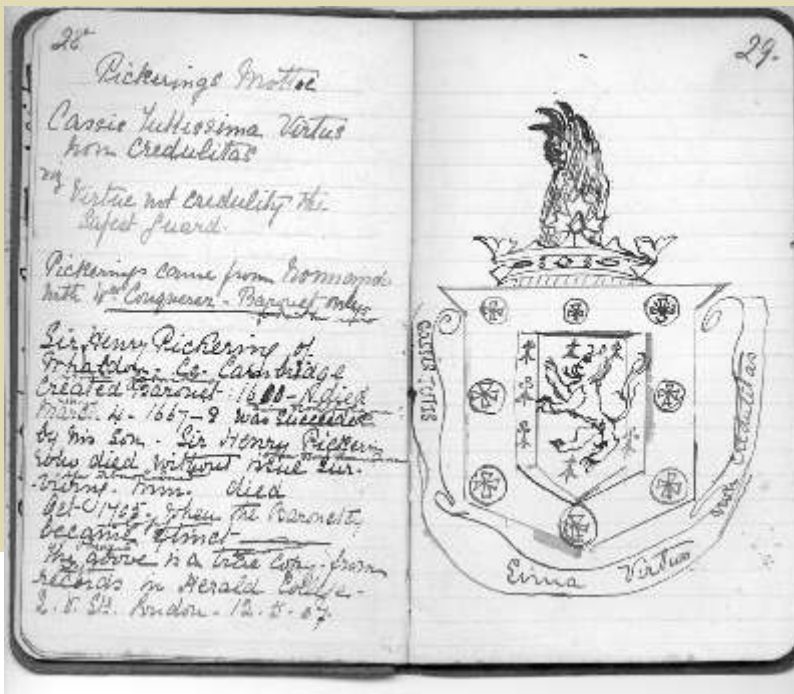 28
Pickerings Mottoe
Cassis Tuttissima Virtus
non Credulitas
Virtue not credulity the
Safest guard.
Pickerings came from
with Wm Conqueror - Baronet only
Sir Henry Pickering of
Whaddon - Co - Cambridge
Created Baronet - & died
March 4 - 1667-8 was succeeded
by his Son - Sir Henry Pickering
who died without issue sur-
viving. died
1705 - when the Baronetcy
became Extinct
The above is a true copy from
records in Herald College -
London - 12.5.07
29.
Virtus
Credulitas